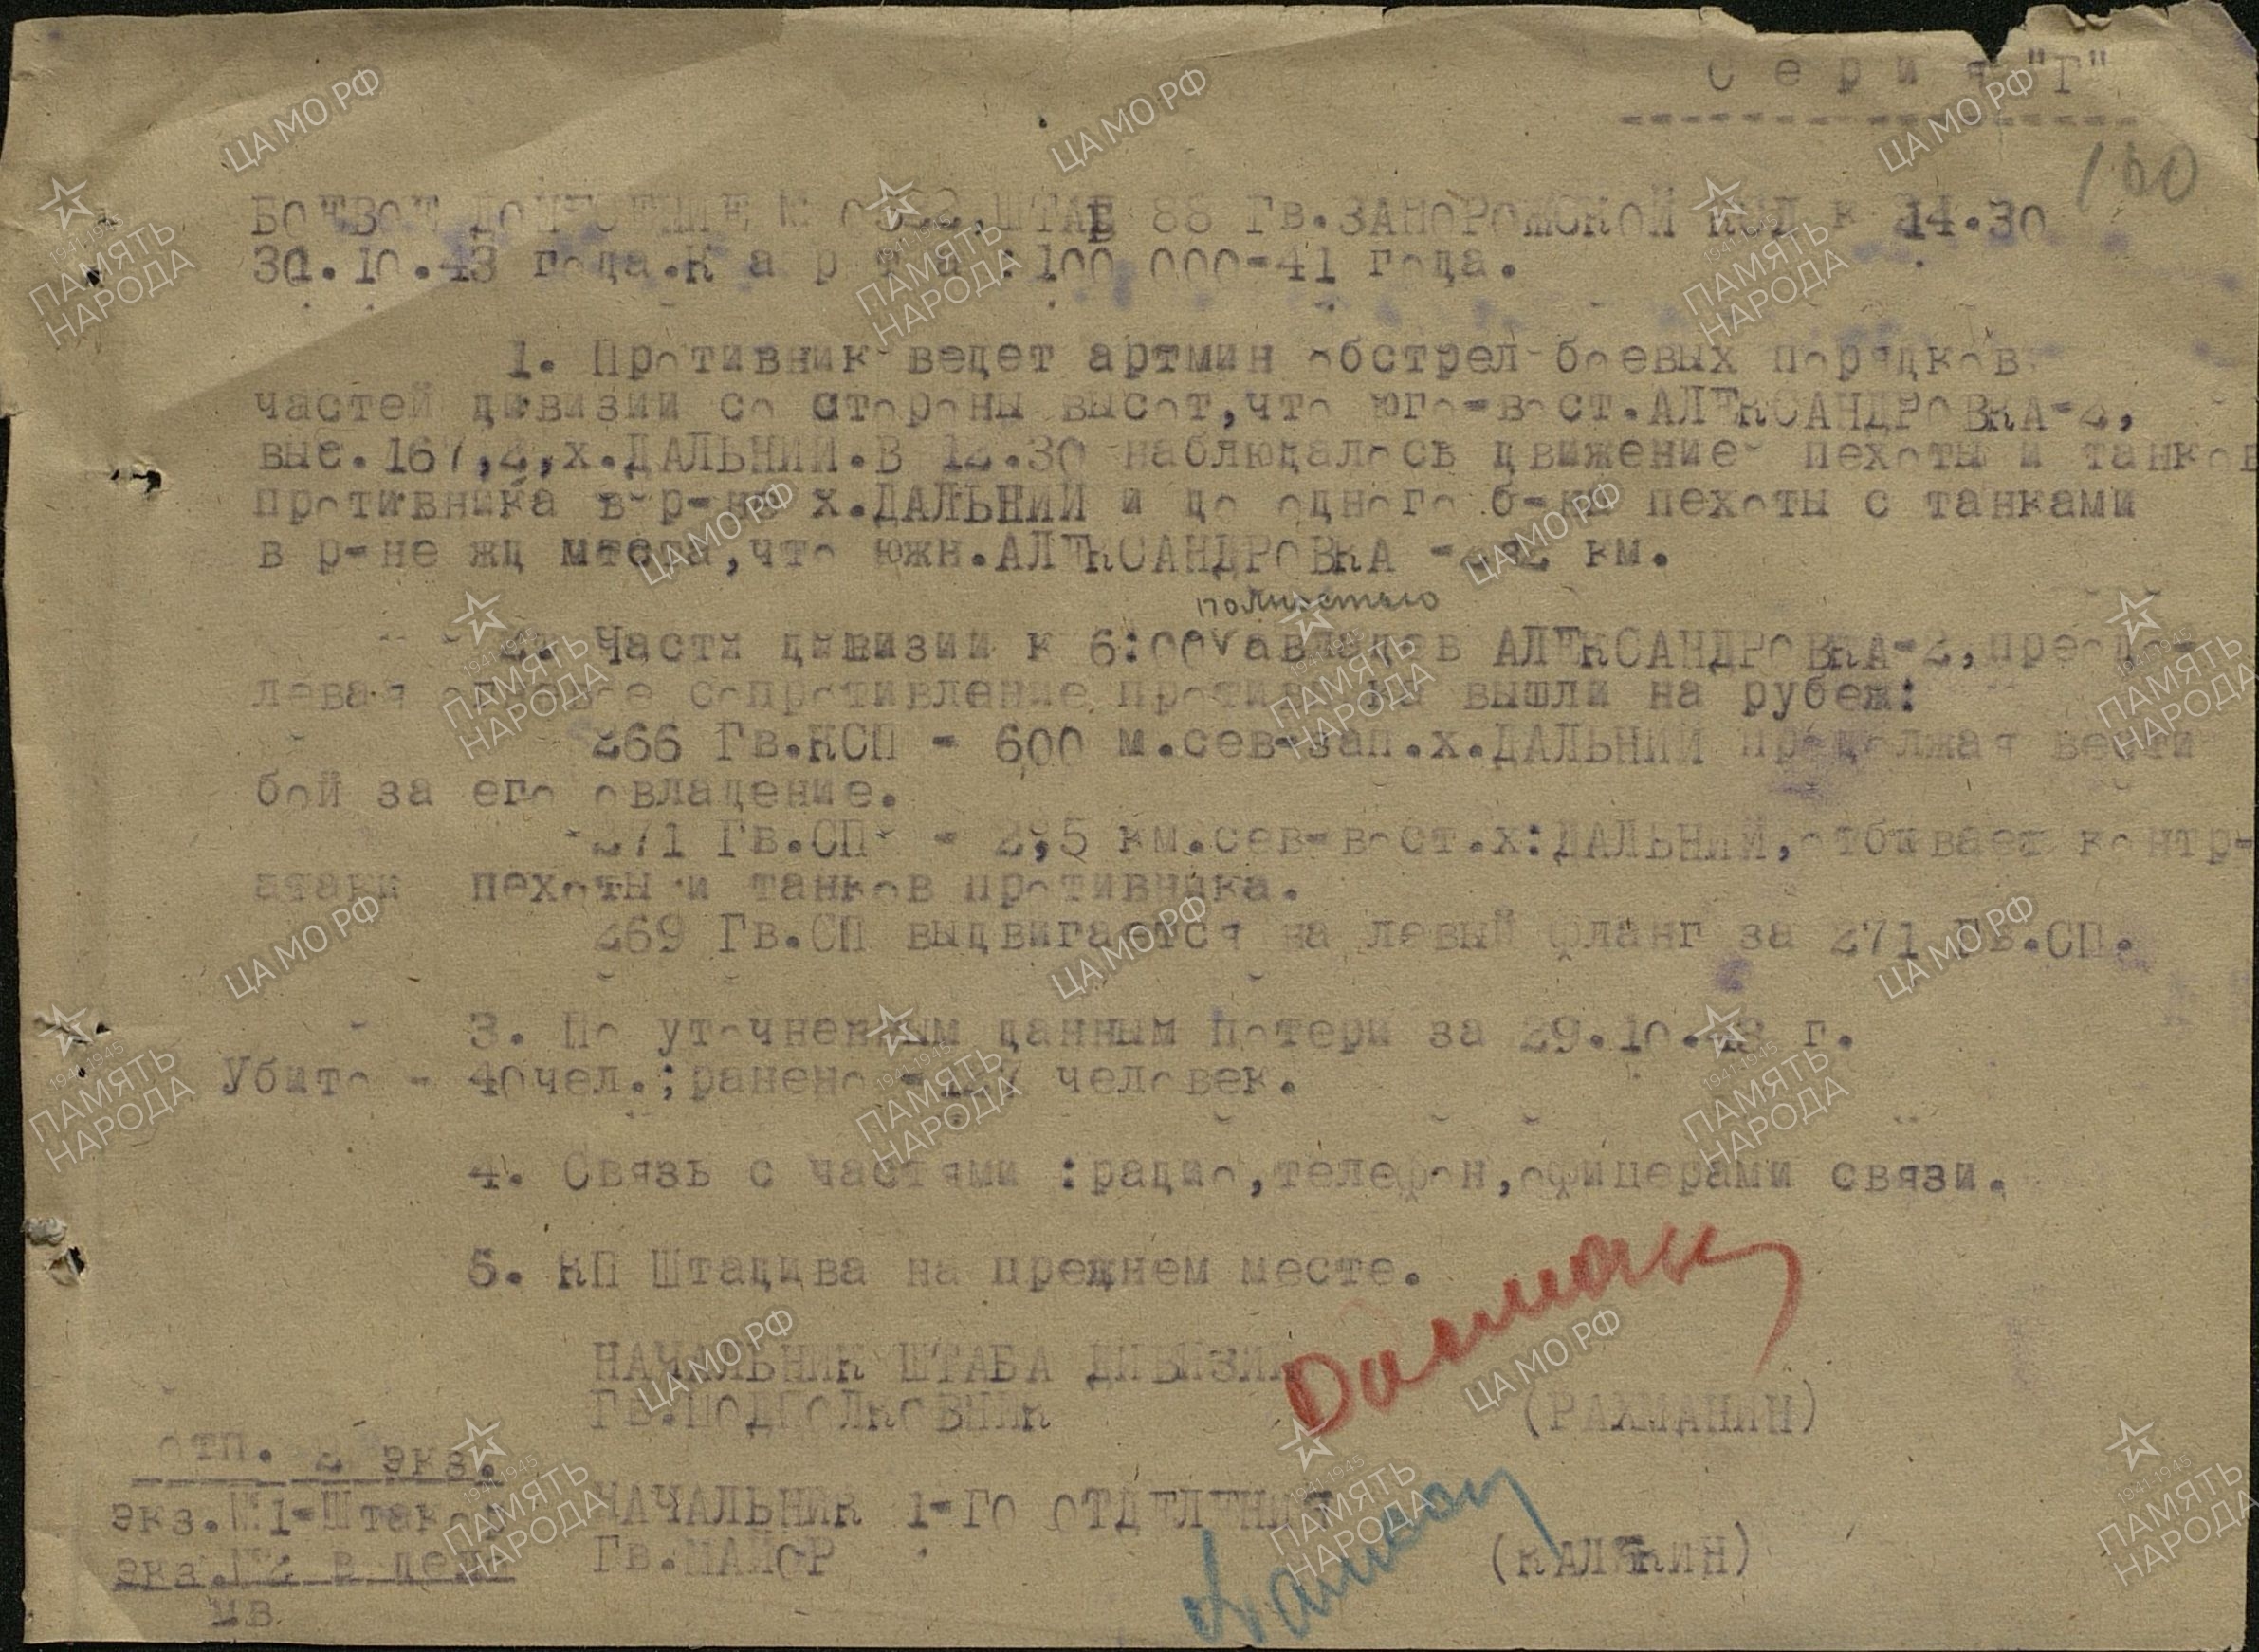 Серия "Г"
160
БОЕВОЕ ДОНЕСЕНИЕ № ШТАБ 88 Гв.ЗАПОРОЖСКОЙ КСД к 14.30
30.10.43 года.К а р т а :100 000-41 года.
1. Противник ведет артмин обстрел боевых порядков
частей дивизии со стороны высот,что юго-вост.АЛЕКСАНДРОВКА-2,
выс.167,2,х.ДАЛЬНИЙ.В 12.30 наблюдалось движение пехоты и танков
противника в р-не х.ДАЛЬНИЙ и до одного б-на пехоты с танками
в р-не жд моста,что южн.АЛЕКСАНДРОВКА км.
полностью
2. Части дивизии к 6:00 V авладев АЛЕКСАНДРОВКА-2,преодо-
левая огневое сопротивление противника вышли на рубеж:
266 Гв.КСП - 600 м.сев-зап.х.ДАЛЬНИЙ продолжая вести
бой за его овладение.
271 Гв.СП - 2,5 км.сев-вост.х:ДАЛЬНИЙ,отбивает контр-
атаки пехоты и танков противника.
269 Гв.СП выдвигается на левый фланг за 271 Гв.СП.
3. По уточненным данным потери за 29.10.43 г.
Убито - 40чел.;ранено - человек.
4. Связь с частями :радио,телефон,офицерами связи.
5. КП Штадива на прежнем месте.
НАЧАЛЬНИК ШТАБА ДИВИЗИИ
Гв.ПОДПОЛКОВНИК (РАХМАНИН)
отп. 2 экз.
экз.№1-Штакор НАЧАЛЬНИК 1-ГО ОТДЕЛЕНИЯ
экз.№2 в дело Гв.МАЙОР (КАЛЕКИН)
ЦА МО РФ
1941-1945
ПАМЯТЬ
НАРОДА